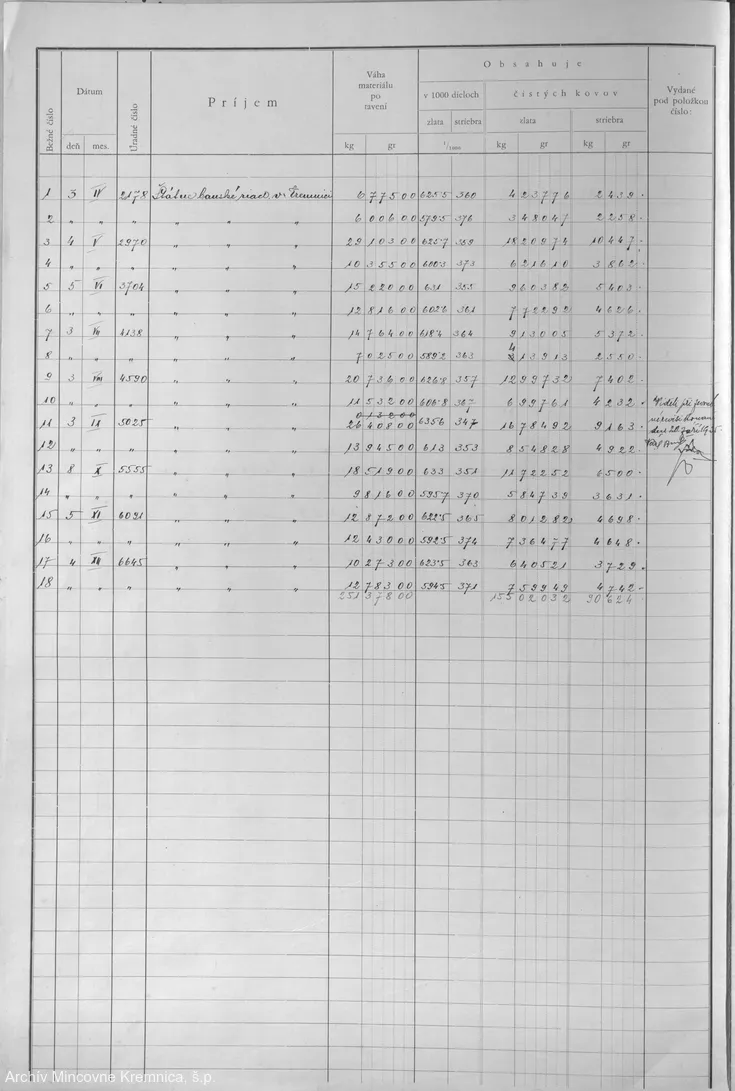 Obsahuje
Bežné číslo
Dátum
Úradné číslo
Príjem
Váha materiálu po ravení
v 1000 dieloch
čistých kovov
Vydané pod položkou číslo:
zlata
striebra
zlata
striebra
deň
mes.
kg
gr
1/1000
kg
gr
kg
gr
1 3 IV 2178 Štátne banské riad. v Kremnici 6 77500 625·5 360 4 23776 2 439·
2 „ „ „ „ „ 6 00600 579·5 376 3 48047 2 258·
3 4 V 2970 „ „ „ 29 10300 625·7 359 18 20974 10 447·
4 „ „ „ „ „ 10 35500 600·3 373 6 21610 3 862·
5 5 VI 3704 „ „ „ 15 22000 631 355 9 60382 5 403·
6 „ „ „ „ „ 12 81600 602·6 361 7 72292 4 626·
7 3 VII 4138 „ „ „ 14 76400 618·4 364 9 13005 5 372·
8 „ „ „ „ „ 7 02500 589·2 363 4 13913 2 550·
9 3 VIII 4590 „ „ „ 20 73600 626·8 357 12 99732 7 402·
10 „ „ „ 11 53200 606·8 367 6 99761 4 232·
11 3 IX 5025 „ „ „ 26 40800 635·6 347 16 78492 9 163·
12 „ „ „ „ „ 13 94500 613 353 8 54828 4 922·
13 8 X 5555 „ „ „ 18 51900 633 351 11 72252 6 500·
14 „ „ „ „ „ 9 81600 595·7 370 5 84739 3 631·
15 5 XI 6091 „ „ „ 12 87200 622·5 365 8 01282 4 698·
16 „ „ „ „ „ 12 43000 592·5 374 7 36477 4 648·
17 4 XII 6645 „ „ „ 10 27300 623·5 363 6 40521 3 729·
18 „ „ „ „ „ 12 78300 594·5 371 7 59949 4 742·
251 37800 155 02032 90 624·
Archív Mincovne Kremnica, š.p.